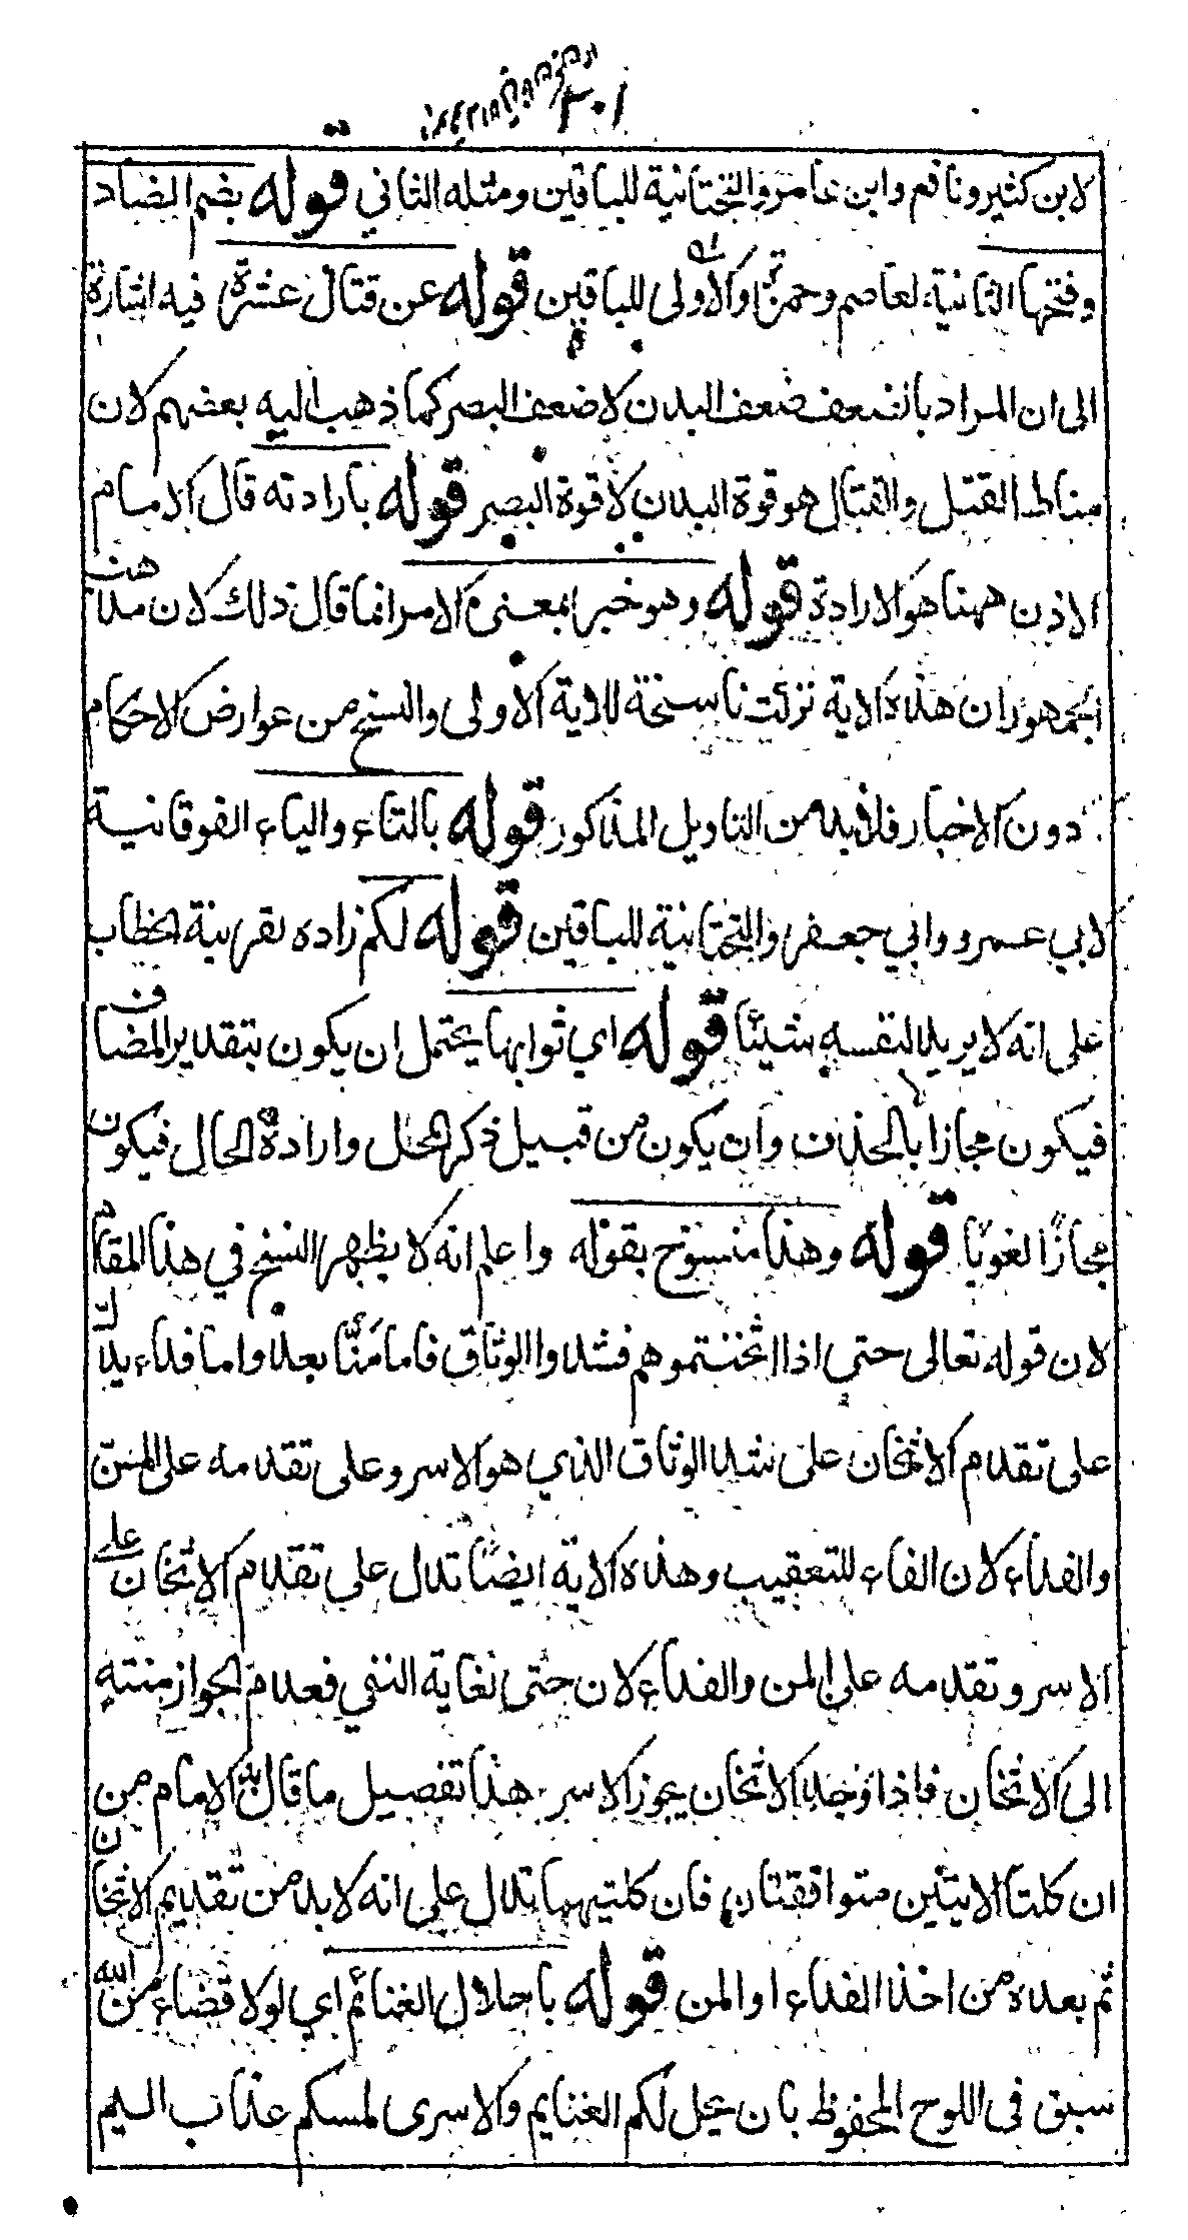 ٣٠١
لابن كثير ونافع وابن عامر والتحتانية للباقين ومثله الثاني قوله بضم الضاد
وفتحها الثانية لعاصم وحمزة والاولى للباقين قوله عن قتال عشرة فيه اشارة
الى ان المراد بالضعف ضعف البدن لا ضعف البصر كما ذهب اليه بعضهم لان
مناط القتل والقتال هو قوة البدن لا قوة البصر قوله بارادته قال الامام
الاذن ههنا هو الارادة قوله وهو خبر بمعنى الامر انما قال ذلك لان مذهب
الجمهور ان هذه الاية نزلت ناسخة للاية الاولى والنسخ من عوارض الاحكام
دون الاخبار فلابد من التاويل المذكور قوله بالتاء والياء الفوقانية
لابي عمرو وابي جعفر والتحتانية للباقين قوله لكم زاده بقرينة الخطاب
على انه لا يريد لنفسه شيئا قوله اي ثوابها يحتمل ان يكون بتقدير المضاف
فيكون مجازا بالحذف وان يكون من قبيل ذكر المحل وارادة الحال فيكون
مجازًا لغويًا قوله وهذا منسوخ بقوله واعلم انه لا يظهر النسخ في هذا المقام
لان قوله تعالى حتى اذا اثخنتموهم فشدوا الوثاق فاما مَنًّا بعد واما فداء يدل
على تقدم الاثخان على شد الوثاق الذي هو الاسر وعلى تقدمه على المن
والفداء لان الفاء للتعقيب وهذه الاية ايضًا تدل على تقدم الاثخان على
الاسر وتقدمه على المن والفداء لان حتى لغاية النفي فعدم الجواز منته
الى الاثخان فاذا وجد الاثخان يجوز الاسر هذا تفصيل ما قال الامام من
ان كلتا الايتين متوافقتان فان كلتيهما تدل على انه لابد من تقديم الاثخان
ثم بعده من اخذ الفداء او المن قوله باحلال الغنائم اي لولا قضاء من الله
سبق فى اللوح المحفوظ بان يحل لكم الغنايم والاسرى لمسكم عذاب اليم